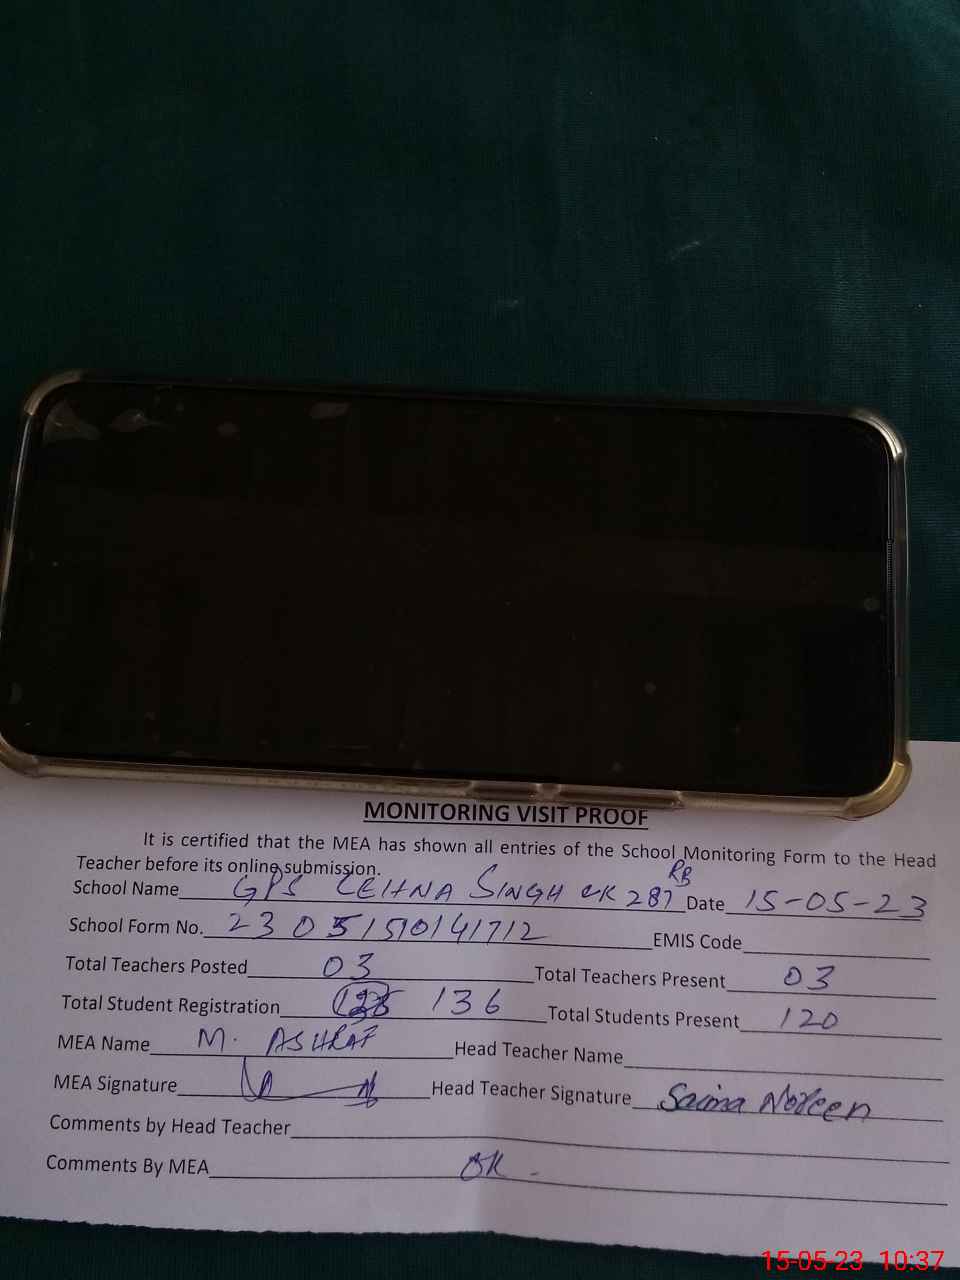 MONITORING VISIT PROOF
It is certified that the MEA has shown all entries of the School Monitoring Form to the Head
Teacher before its online submission.
School Name GPS LEHNA SINGH CK 287 RB Date 15-05-23
School Form No. 23051590141712 EMIS Code
Total Teachers Posted 03 Total Teachers Present 03
Total Student Registration 136 Total Students Present 120
MEA Name M. ASHRAF Head Teacher Name
MEA Signature Head Teacher Signature Saima Noreen
Comments by Head Teacher
Comments By MEA OK -
15-05-23 10:37